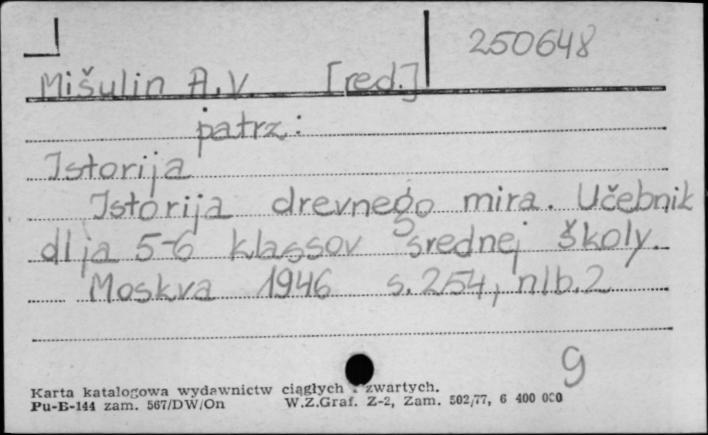 250648
Mišulin A.V [red.]
patrz:
Istorija
Istorija drevnego mira. Učebnik
dlja 5-6 klassov srednej školy.
Moskva 1946 s. 254, nlb. 2
9
Karta katalogowa wydawnictw ciągłych i zwartych.
Pu-B-144 zam. 567/DW/On W.Z.Graf. Z-2, Zam. 502/77, 6 400 000